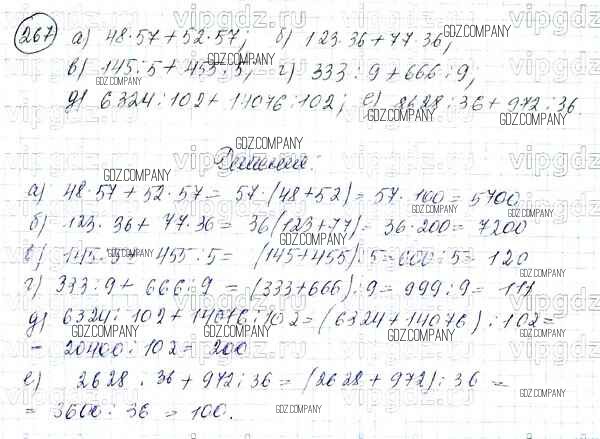 267 а) 48·57+52·57; б) 123·36+77·36,
в) 145:5+455:5, г) 333:9+666:9,
д) 6324:102+14076:102; е) 2628:36+972:36.
Решение:
а) 48·57+52·57= 57·(48+52)= 57·100= 5700
б) 123·36+77·36= 36(123+77)= 36·200= 7200
в) 145:5+455:5= (145+455):5=600:5= 120
г) 333:9+666:9= (333+666):9= 999:9= 111
д) 6324:102+14076:102=(6324+14076):102=
= 20400:102= 200
е) 2628:36+972:36= (2628+972):36 =
= 3600:36 = 100.
vipgdz.ru
GDZ.COMPANY